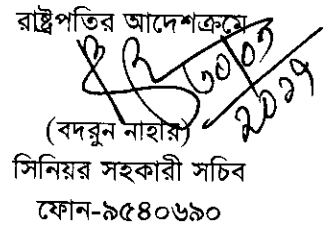 রাষ্ট্রপতির আদেশক্রমে
(বদরুন নাহার)
সিনিয়র সহকারী সচিব
ফোন-৯৫৪০৬৯০